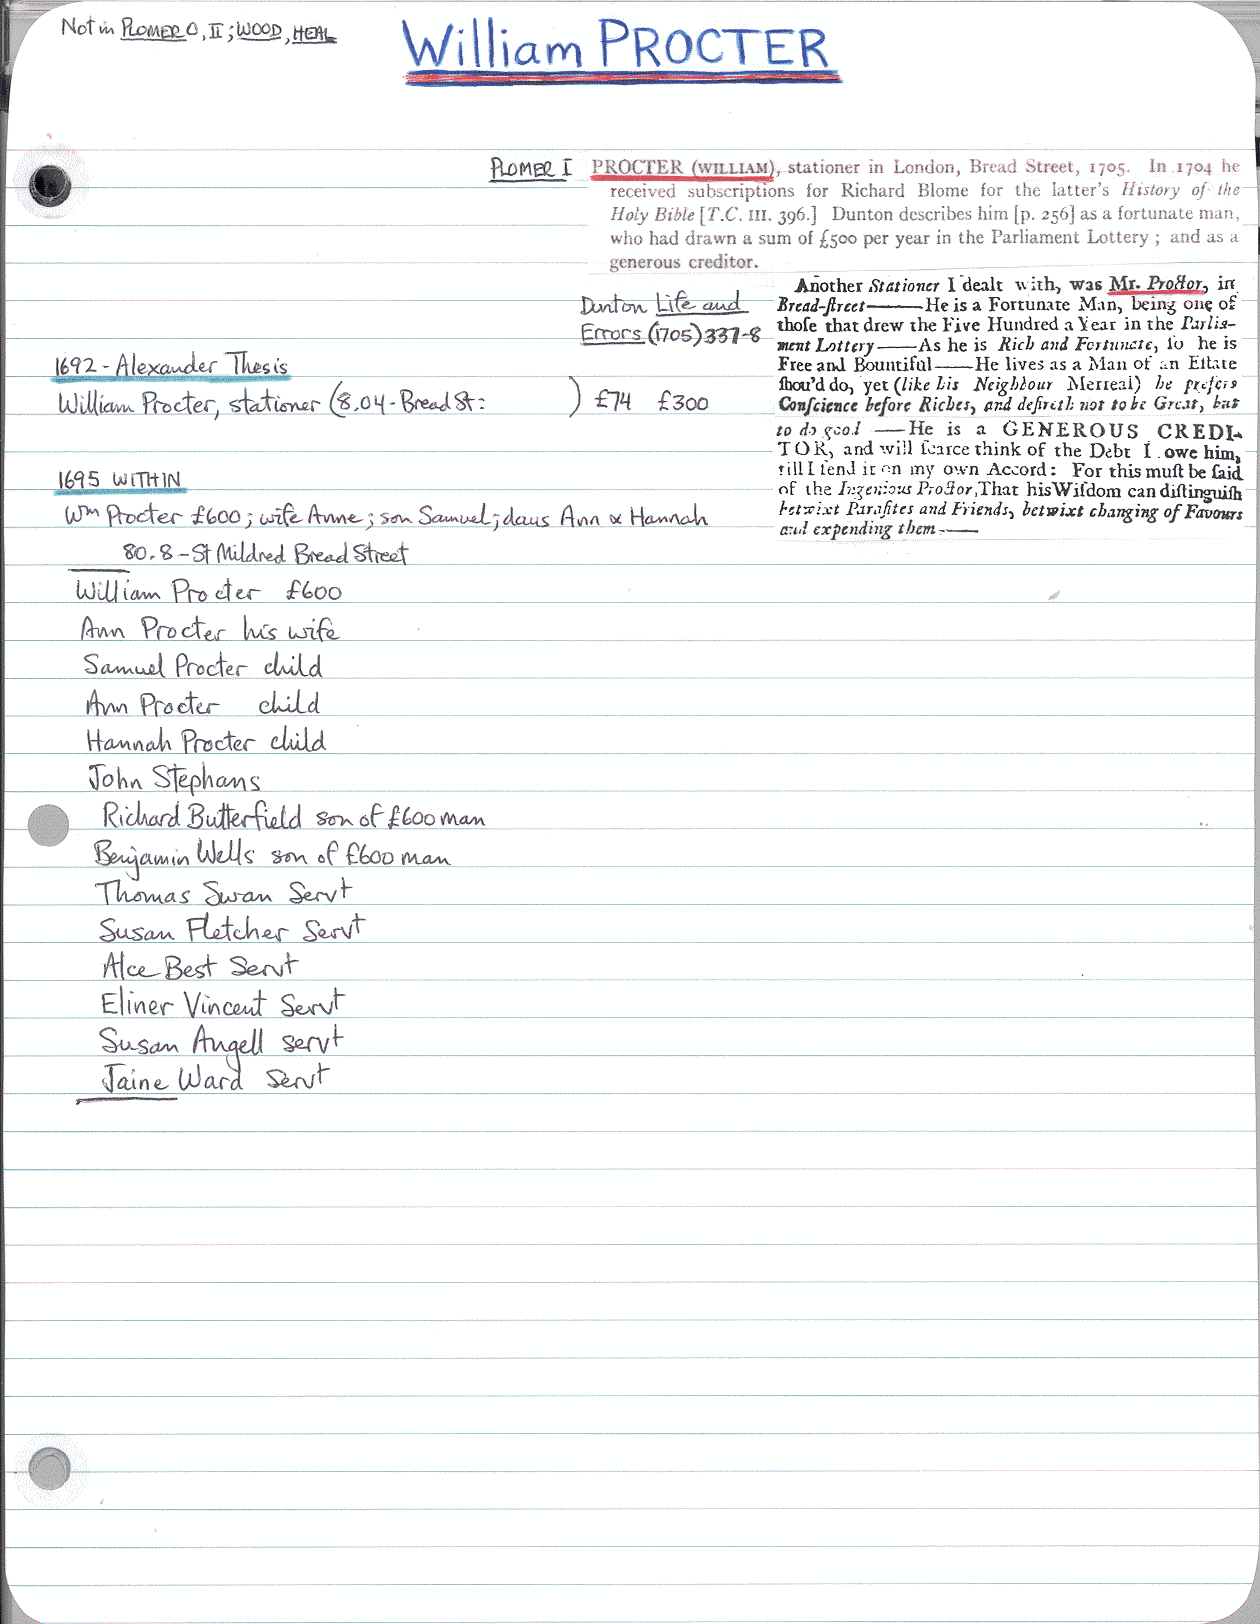 Not in PLOMER O, II; WOOD, HEAL
William PROCTER
PLOMER I
PROCTER (WILLIAM), stationer in London, Bread Street, 1705. In 1704 he
received subscriptions for Richard Blome for the latter's History of the
Holy Bible [T.C. III. 396.] Dunton describes him [p. 256] as a fortunate man,
who had drawn a sum of £500 per year in the Parliament Lottery ; and as a
generous creditor.
Dunton Life and
Errors (1705) 337-8
Another Stationer I dealt with, was Mr. Proctor, in
Bread-ſtreet——He is a Fortunate Man, being one of
thoſe that drew the Five Hundred a Year in the Parlia-
ment Lottery——As he is Rich and Fortunate, ſo he is
Free and Bountiful——He lives as a Man of an Eſtate
ſhou'd do, yet (like his Neighbour Merreal) he prefers
Conſcience before Riches, and deſireth not to be Great, but
to do good —He is a GENEROUS CREDI-
TOR, and will ſcarce think of the Debt I owe him,
till I ſend it on my own Accord: For this muſt be ſaid
of the Ingenious Proctor, That his Wiſdom can diſtinguiſh
betwixt Paraſites and Friends, betwixt changing of Favours
and expending them——
1692 - Alexander Thesis
William Procter, stationer (8.04 - Bread St: ) £74 £300
1695 WITHIN
Wm Procter £600; wife Anne; son Samuel; daus Ann & Hannah
80.8 - St Mildred Bread Street
William Procter £600
Ann Procter his wife
Samuel Procter child
Ann Procter child
Hannah Procter child
John Stephans
Richard Butterfield son of £600 man
Benjamin Wells son of £600 man
Thomas Swan Servt
Susan Fletcher Servt
Alce Best Servt
Eliner Vincent Servt
Susan Angell servt
Jaine Ward Servt